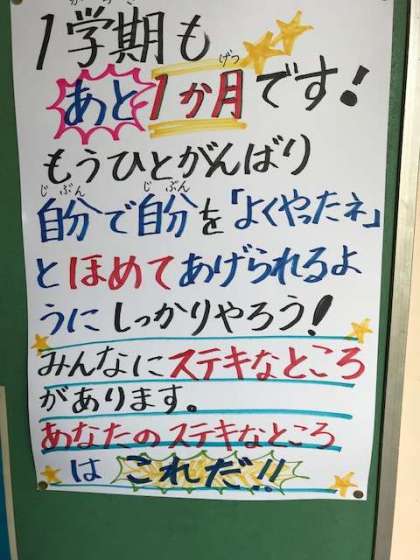 1学期も
あと1か月です！
もうひとがんばり
自分で自分を「よくやったネ」
とほめてあげられるよ
うにしっかりやろう！
みんなにステキなところ
があります。
あなたのステキなところ
はこれだ！！